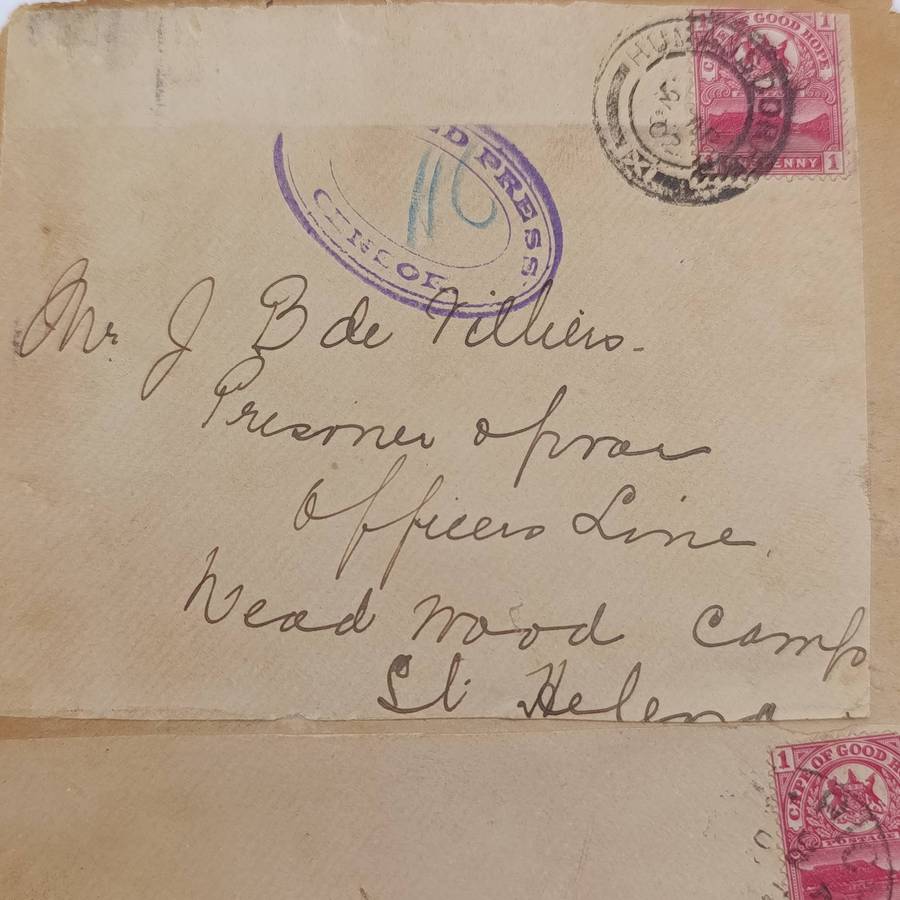 1 CAPE OF GOOD HOPE 1
HUMANSDORP
ONE PENNY 1
PRESS
CENSOR
116
Mr. J B de Villiers.
Prisoner of war
Officers Line.
Dead Wood Camp
St. Helena
1 CAPE OF GOOD
POSTAGE